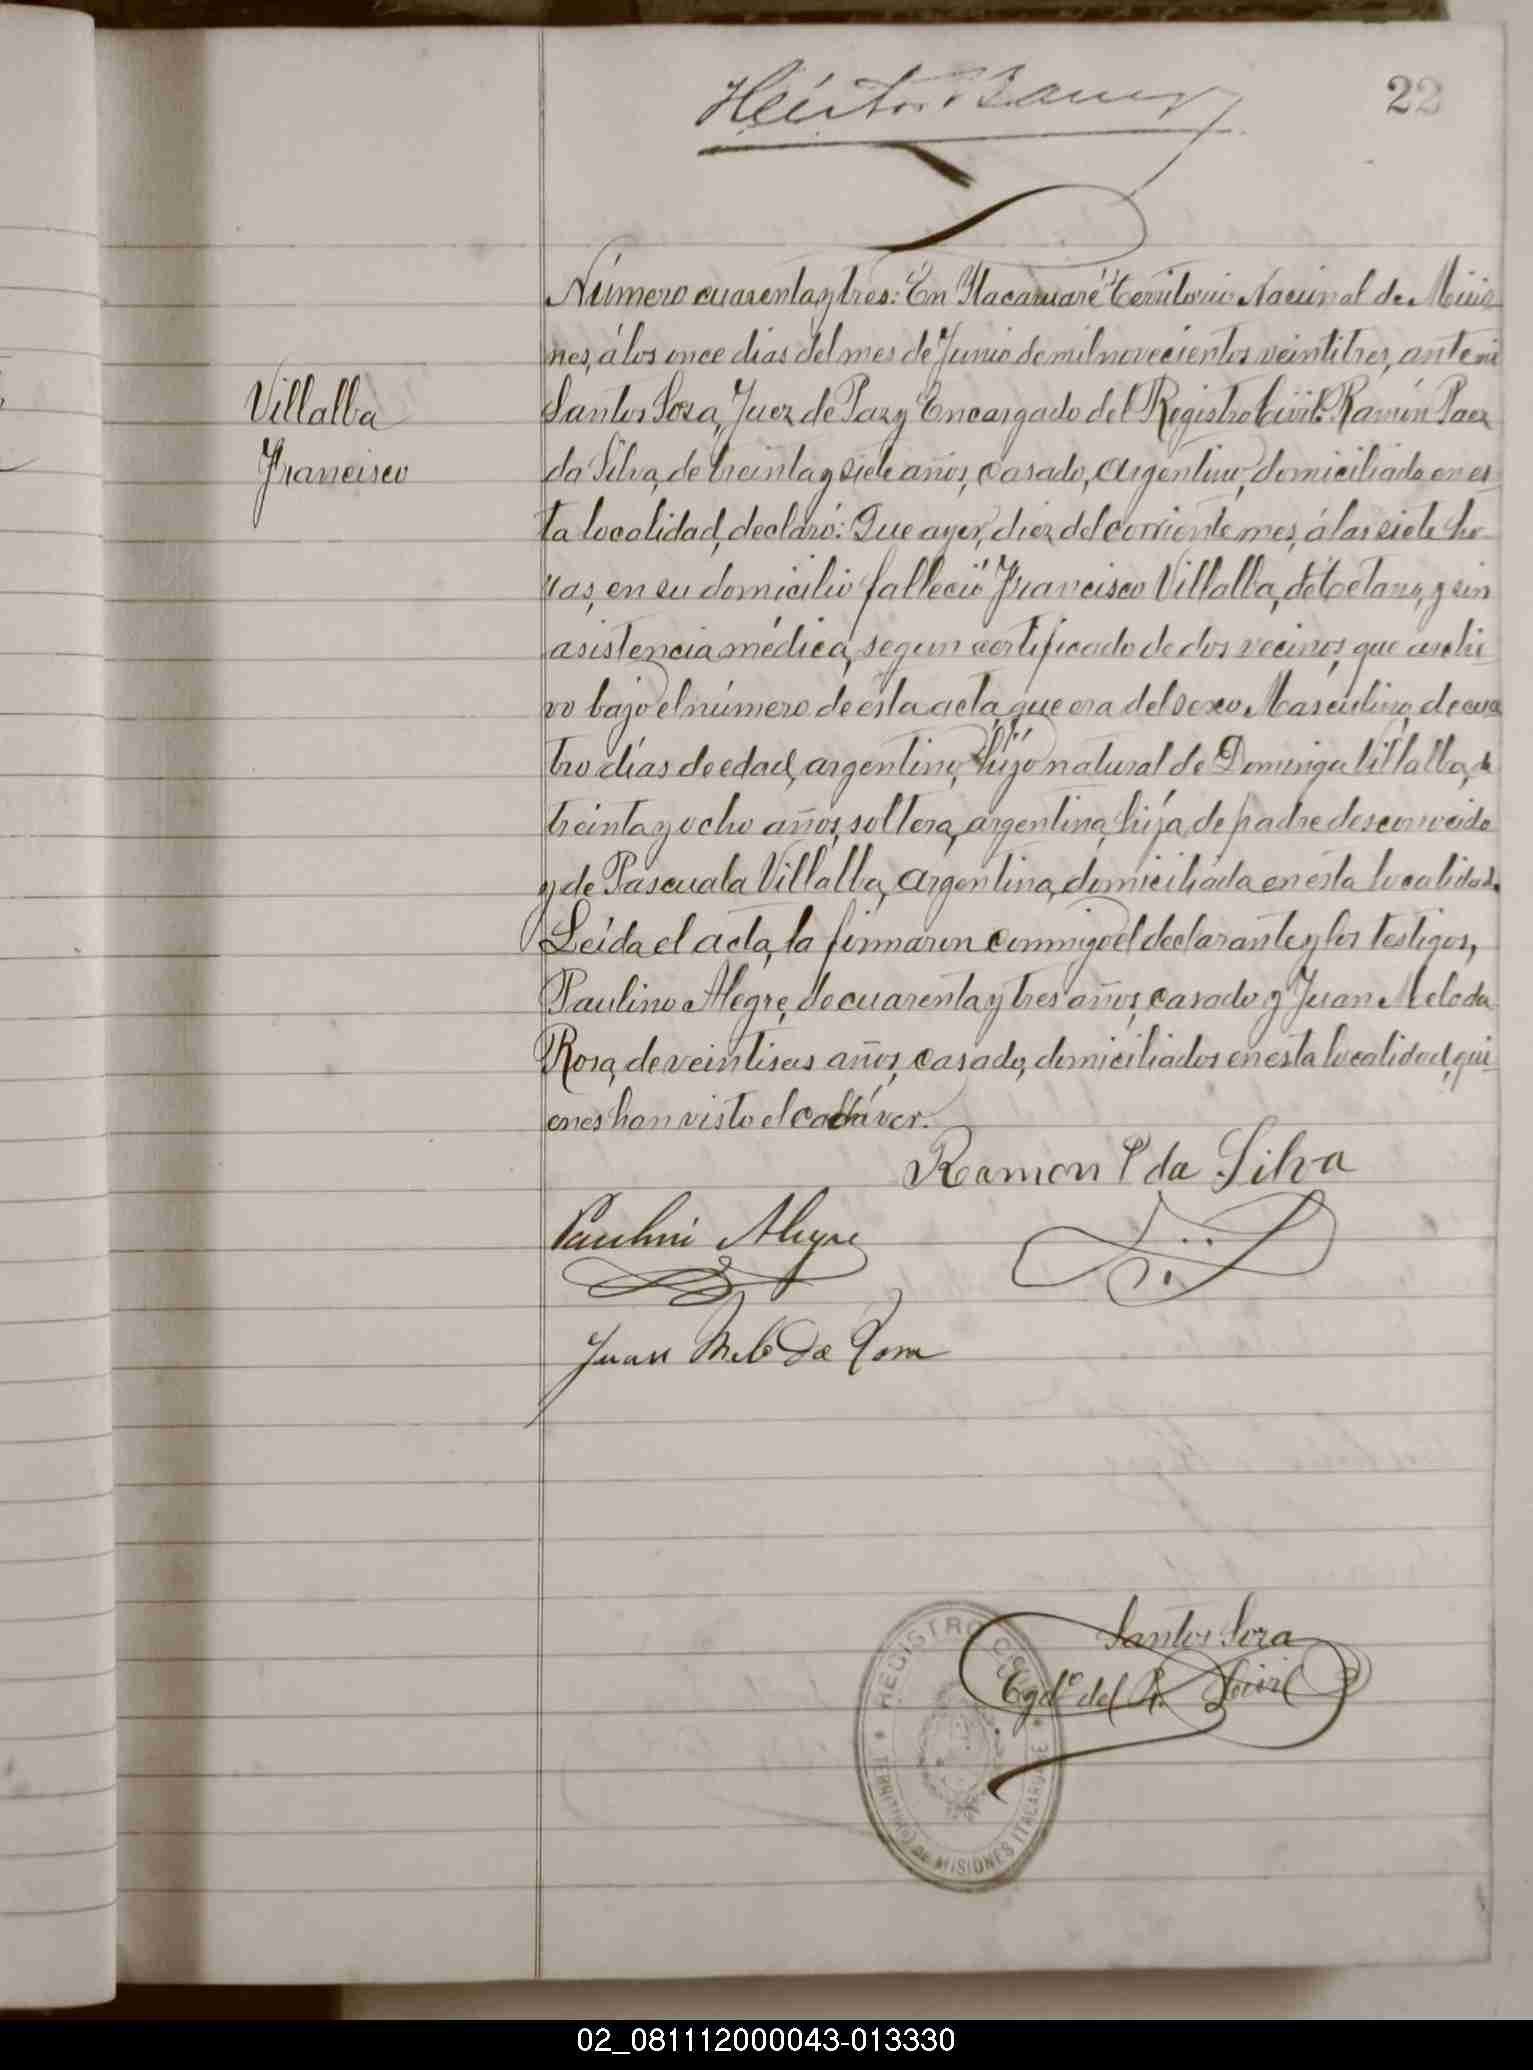 22
Héctor Barrey
Villalba
Francisco
Número cuarenta y tres: En Itacaruaré Territorio Nacional de Misio
nes, á los once dias del mes de Junio de mil novecientos veintitres, ante mi
Santos Sosa, Juez de Paz y Encargado del Registro Civil: Ramón Paez
da Silva, de treinta y siete años, casado, argentino, domiciliado en es-
ta localidad, declaró: Que ayer, diez del corriente mes, á las siete ho-
ras, en su domicilio falleció Francisco Villalba, de tetano, y sin
asistencia médica, segun certificado de dos vecinos, que archi
vo bajo el número de esta acta, que era del sexo Masculino, de cua
tro días de edad, argentino, hijo natural de Dominga Villalba, de
treinta y ocho años, soltera, argentina, hija de padre desconocido
y de Pascuala Villalba, argentina, domiciliada en esta localidad.
Leída el acta, la firmaron conmigo el declarante y los testigos,
Paulino Alegre, de cuarenta y tres años, casado y Juan Melo da
Rosa, de veintiseis años, casado, domiciliados en esta localidad, qui-
enes han visto el cadáver.
Ramon P da Silva
Paulino Alegre
Juan Melo Da Rosa
Santos Sosa
Egdo del R. Civil
REGISTRO CIVIL
TERRITORIO DE MISIONES ITACARUARE
02_081112000043-013330